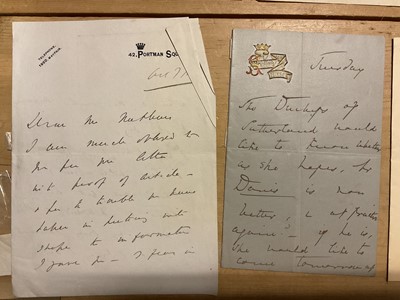 TELEPHONE,
1952 MAYFAIR.
42, PORTMAN SQ
Oct
Dear Mr Matthews
I am much obliged to
for letter
with proof of article -
& for the trouble you have
taken in putting into
shape the information
I gave you - I fear in
Tuesday
The Duchess of
Sutherland would
like to know whether
as she hopes, Mr
Davis is now
better, & at
again? - if he is,
she would like to
come tomorrow at